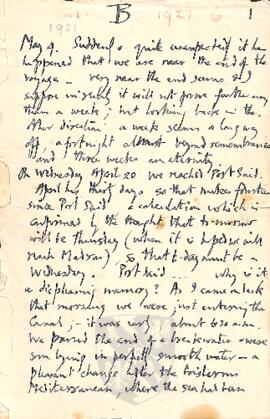 B 1921 1
1921
May 4. Sudden & quite unexpected it has
happened that we are near the end of the
voyage – very near the end seems & I
suppose in reality it will not prove further away
than a week; but looking back in the
other direction a week seems a long way
off, a fortnight almost beyond remembrance
and three weeks an eternity.
On Wednesday April 20 we reached Port Said.
April has thirty days so that makes fourteen
since Port Said – a calculation which is
confirmed by the thought that to-morrow
will be Thursday (when it is hoped we will
reach Madras), so that to-day must be a
Wednesday. Port Said why is it
a displeasing memory? As I came on deck
that morning we were just entering the
Canal; – it was early – about 6.30 a.m.
We passed the end of a breakwater & were
soon lying in perfectly smooth water – a
pleasant change after the boisterous
Mediterranean, where the sea has been